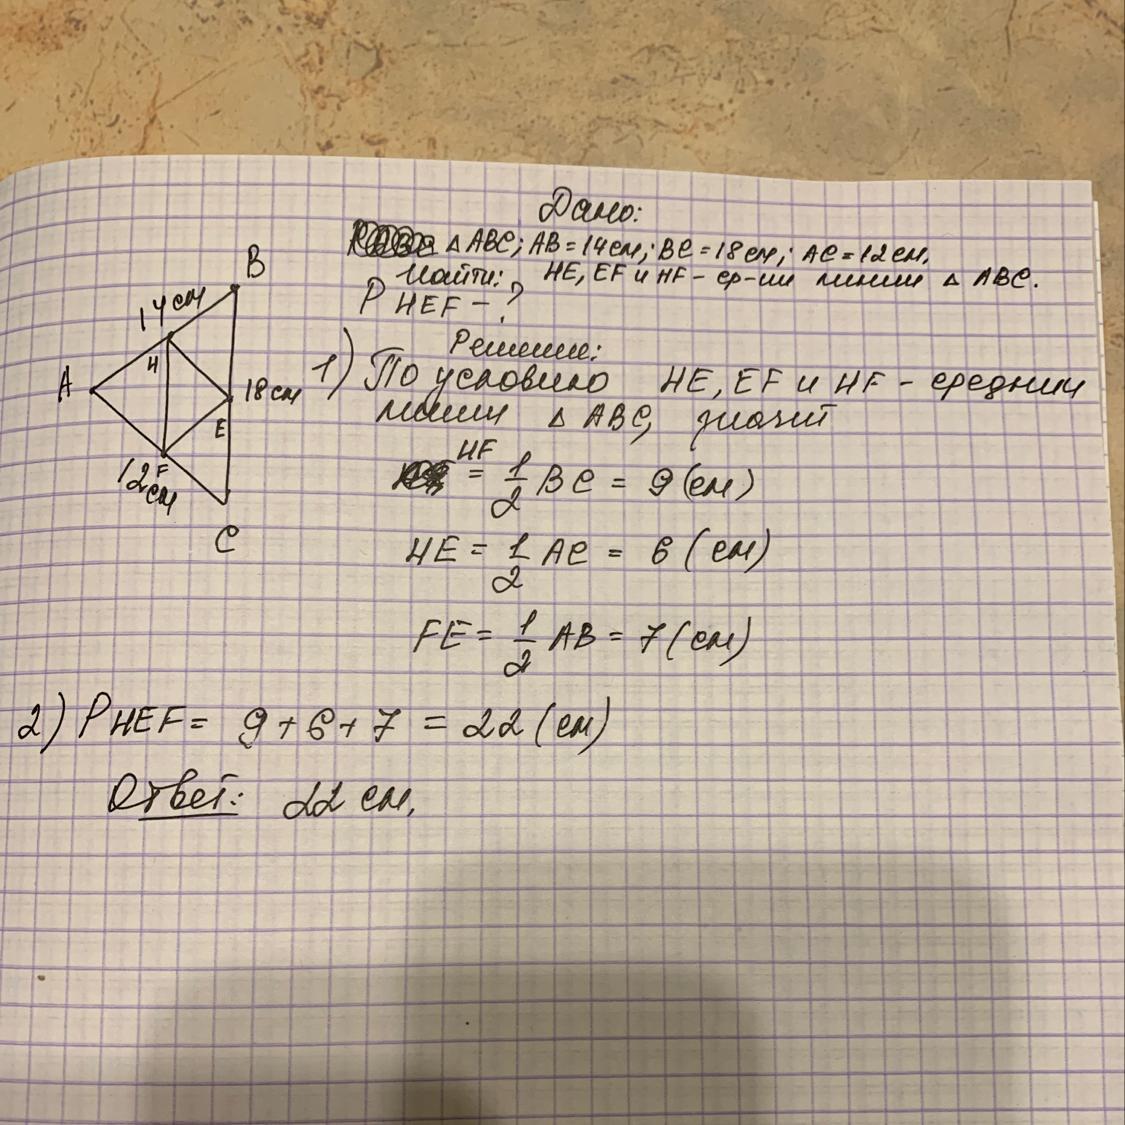 Дано:
△ ABC; AB = 14 см; BC = 18 см; AC = 12 см.
Найти: HE, EF и HF - ср-ии линии △ ABC.
P HEF - ?
B
14 см
H
A
18 см
E
F
12 см
C
Решение:
1) По условию HE, EF и HF - среднии
линии △ ABC, значит
HF = 1/2 BC = 9 (см)
HE = 1/2 AC = 6 (см)
FE = 1/2 AB = 7 (см)
2) P HEF = 9 + 6 + 7 = 22 (см)
Ответ: 22 см.